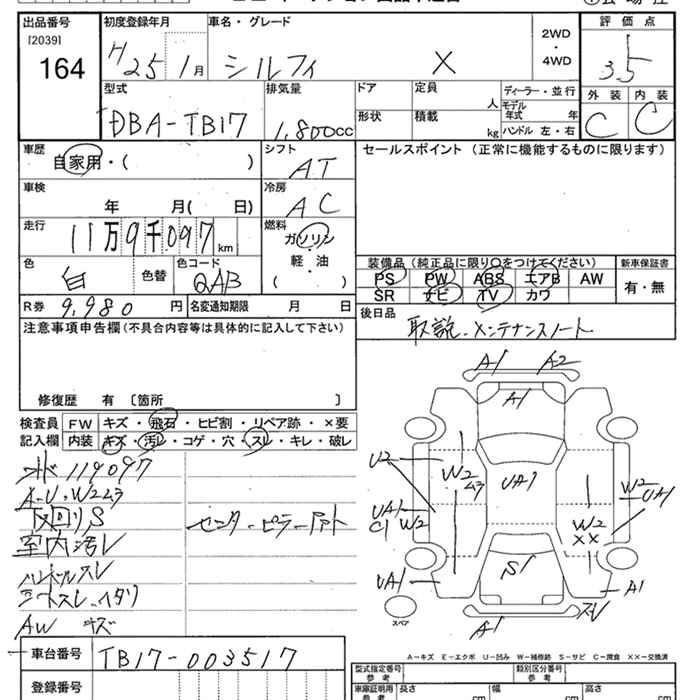 出品番号
[2039]
164
初度登録年月
H25 1月
車名・グレード
シルフィ X
2WD
・
4WD
評価点
3.5
外装 内装
C C
型式
DBA-TB17
排気量
1,800cc
ドア
形状
定員
人
積載
kg
ディーラー・並行
モデル
年式 年
ハンドル 左・右
車歴
自家用・( )
シフト
AT
セールスポイント(正常に機能するものに限ります)
車検
年 月( 日)
冷房
AC
走行
11万9千097km
燃料
ガソリン
・
軽・油
( )
色
白
色替
色コード
QAB
装備品(純正品に限り○をつけてください)
PS PW ABS エアB AW
SR ナビ TV カワ
新車保証書
有・無
R券 9,980円
名変通知期限 月 日
後日品
取説.メンテナンスノート
注意事項申告欄(不具合内容等は具体的に記入して下さい)
修復歴 有 〔箇所 〕
検査員
記入欄
FW キズ・飛石・ヒビ割・リペア跡・×要
内装 キズ・汚レ・コゲ・穴・スレ・キレ・破レ
119097
A-U・W2
下回りS
センターピラー
室内汚レ
ハンドルスレ
AW キズ
A1 A2
A1
U2
W2
UA1
UA1
C1 W2
W2
UA1
W2
××
UA1
S1
A1
A1
スペア
A-キズ E-エクボ U-凹み W-補修跡 S-サビ C-腐食 ××-交換済
車台番号
TB17-003517
登録番号
型式指定番号
参考
類別区分番号
参考
車庫証明用
参考
長さ cm
幅 cm
高さ cm